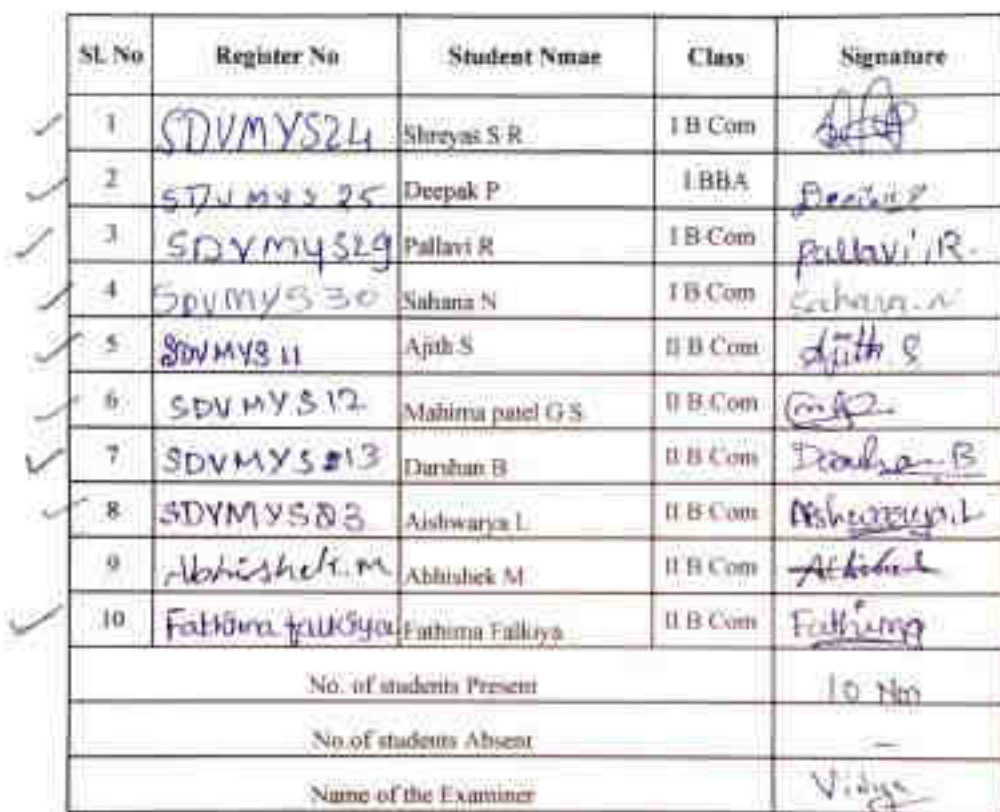 Sl. No Register No Student Nmae Class Signature
1 SDVMYS24 Shreyas S R I B Com
2 SDVMYS25 Deepak P I BBA Deepak P
3 SDVMYS29 Pallavi R I B Com Pallavi.R.
4 SDVMYS30 Sahana N I B Com Sahana.N
5 SDVMYS11 Ajith S II B Com Ajith S
6 SDVMYS12 Mahima patel G S II B.Com
7 SDVMYS13 Darshan B II B Com Darshan B
8 SDVMYS03 Aishwarya L II B Com Aishwarya.L
9 Abhishek.M Abhishek M II B Com Abhishek
10 Fathima falkiya Fathima Falkiya II B Com Fathima
No. of students Present 10 Nm
No.of students Absent —
Name of the Examiner Vidya